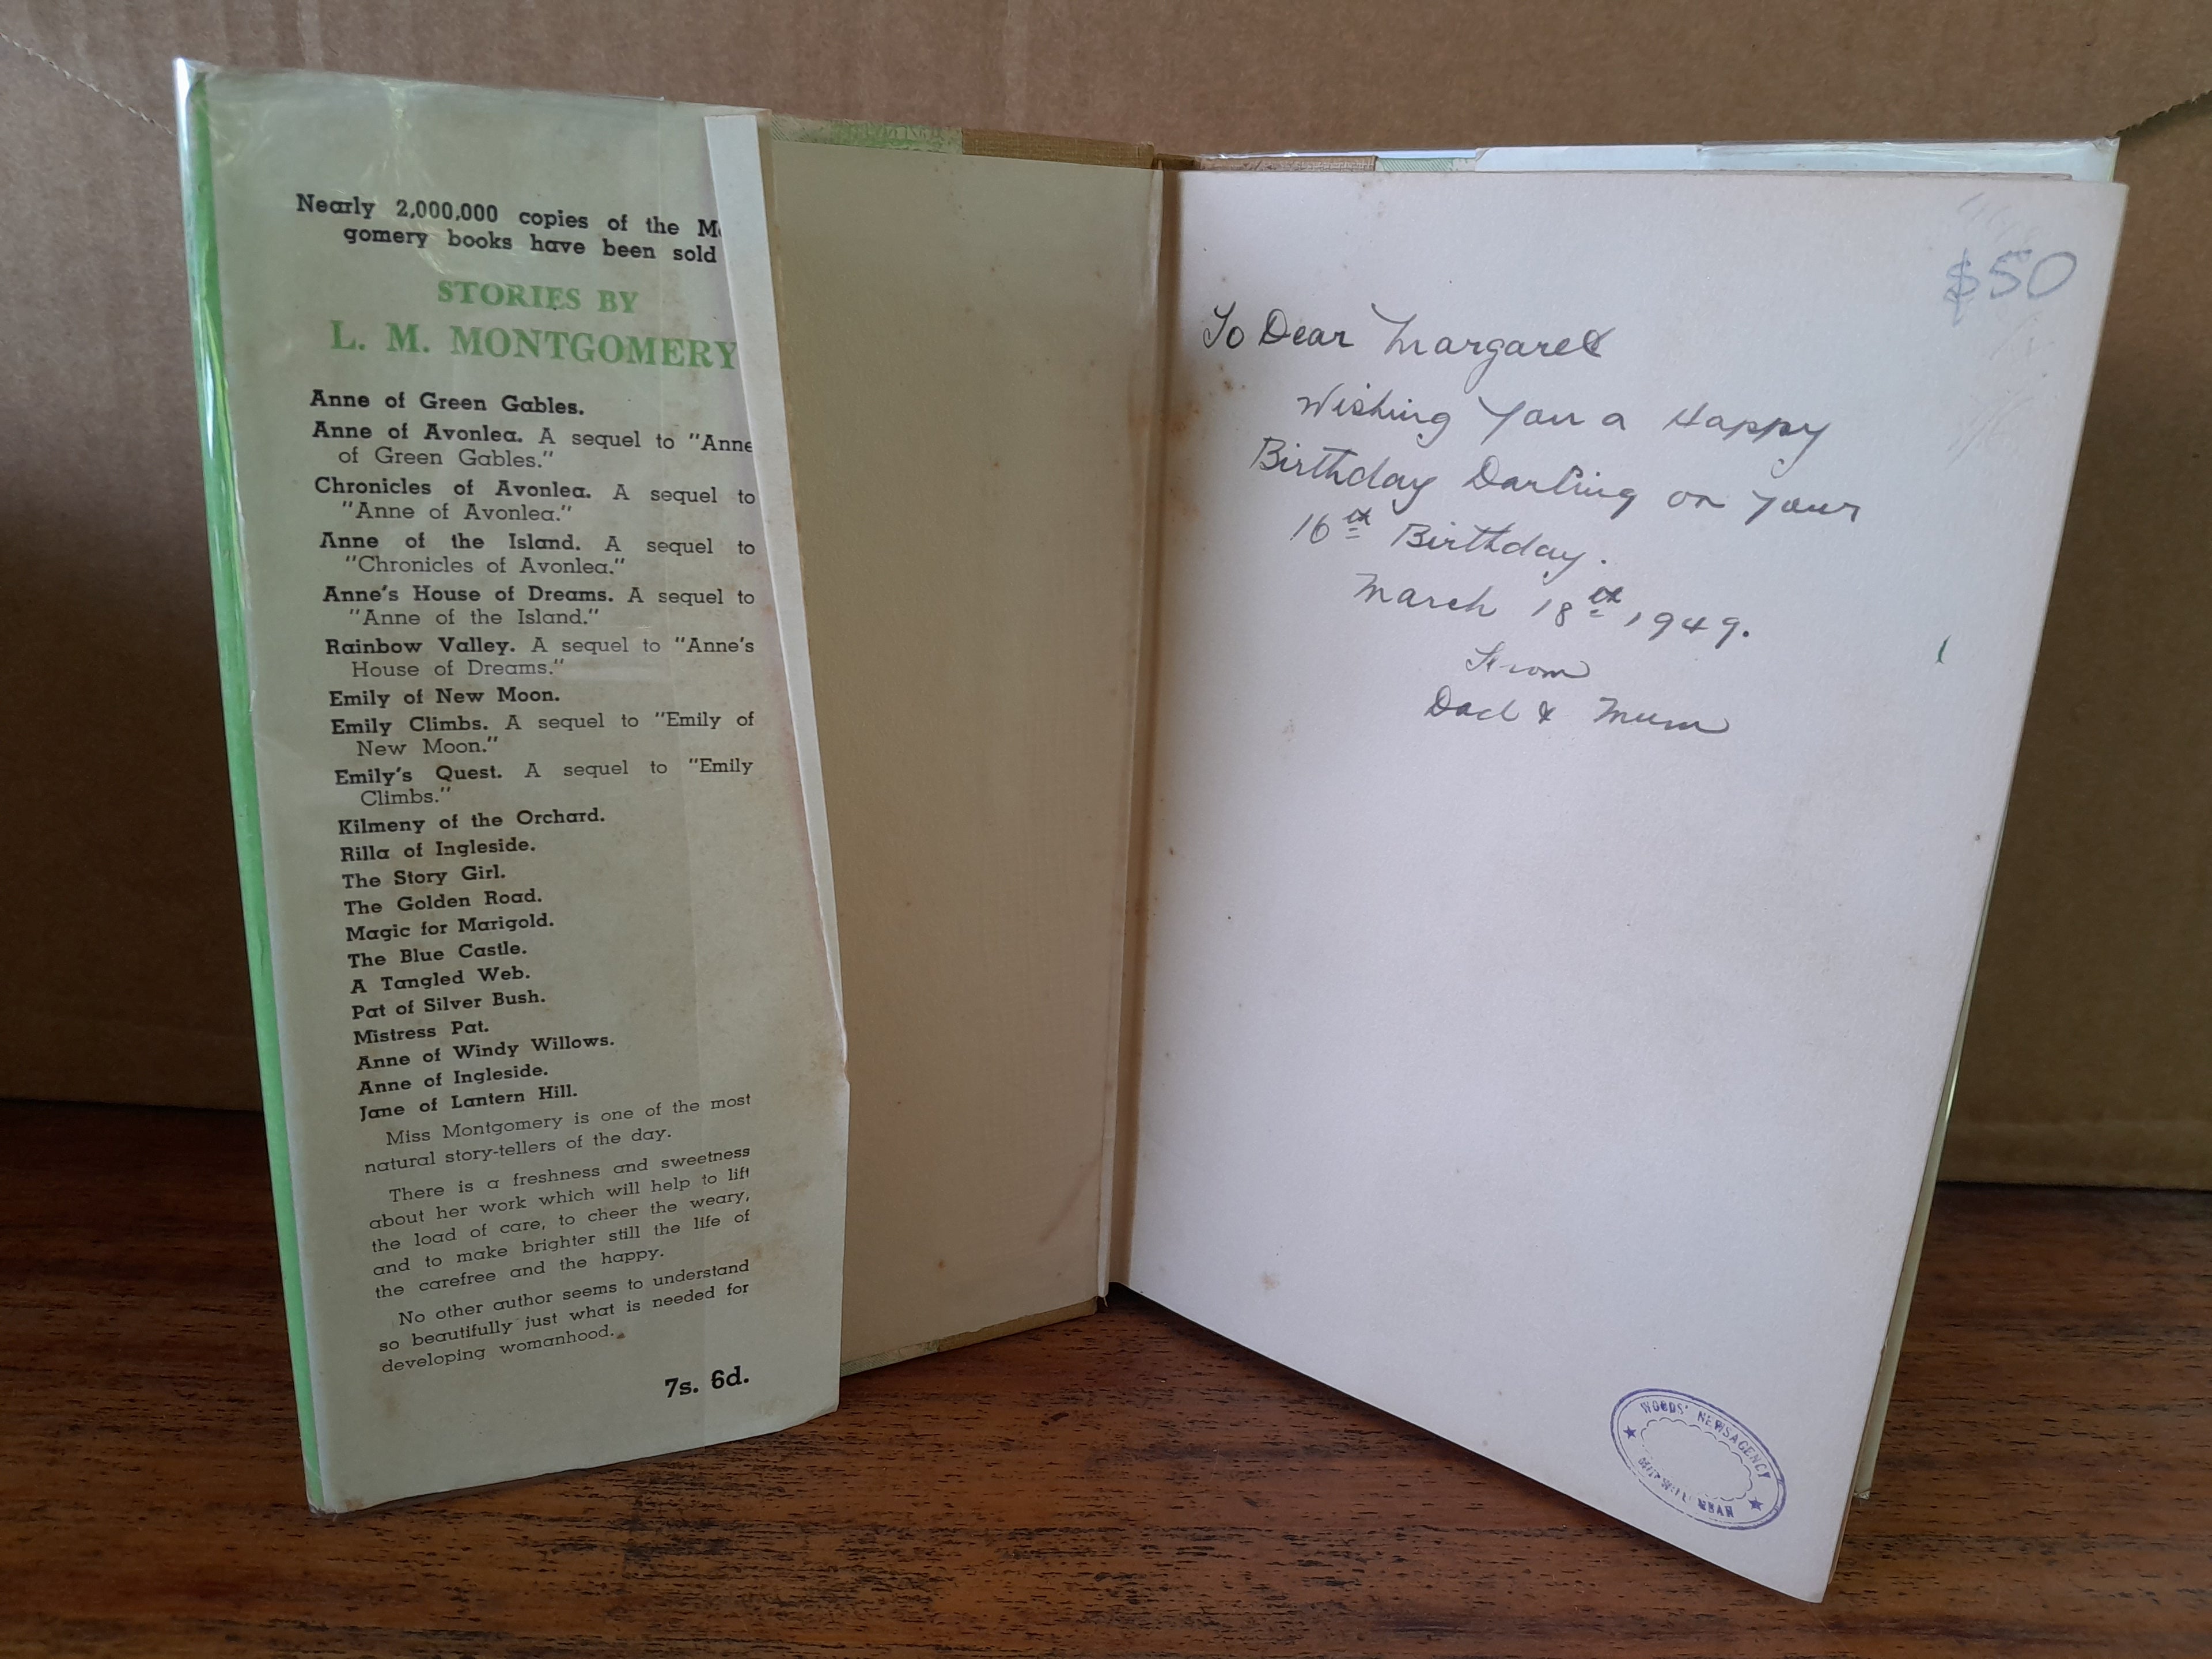 Nearly 2,000,000 copies of the
gomery books have been sold
STORIES BY
L. M. MONTGOMERY
Anne of Green Gables.
Anne of Avonlea. A sequel to "Anne
of Green Gables."
Chronicles of Avonlea. A sequel to
"Anne of Avonlea."
Anne of the Island. A sequel to
"Chronicles of Avonlea."
Anne's House of Dreams. A sequel to
"Anne of the Island."
Rainbow Valley. A sequel to "Anne's
House of Dreams."
Emily of New Moon.
Emily Climbs. A sequel to "Emily of
New Moon."
Emily's Quest. A sequel to "Emily
Climbs."
Kilmeny of the Orchard.
Rilla of Ingleside.
The Story Girl.
The Golden Road.
Magic for Marigold.
The Blue Castle.
A Tangled Web.
Pat of Silver Bush.
Mistress Pat.
Anne of Windy Willows.
Anne of Ingleside.
Jane of Lantern Hill.
Miss Montgomery is one of the most
natural story-tellers of the day.
There is a freshness and sweetness
about her work which will help to lift
the load of care, to cheer the weary,
and to make brighter still the life of
the carefree and the happy.
No other author seems to understand
so beautifully just what is needed for
developing womanhood.
7s. 6d.
$50
To Dear Margaret
Wishing You a Happy
Birthday Darling on Your
16th Birthday.
March 18th, 1949.
From
Dad & Mum
WOODS' NEWSAGENCY